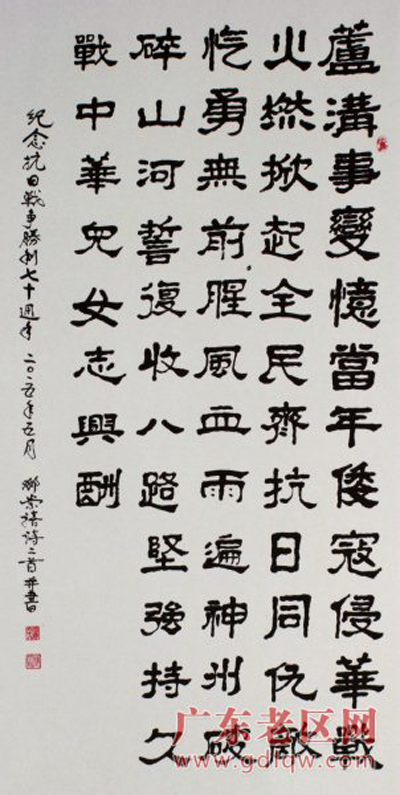 蘆溝事變憶當年倭寇侵華戰
火燃掀起全民齊抗日同仇敵
忾勇無前腥風血雨遍神州破
碎山河誓復收八路堅強持久
戰中華兒女志興酬
紀念抗日戰爭勝利七十週年 二〇一五年五月 詩二首并書
广东老区网
www.gdlqw.com